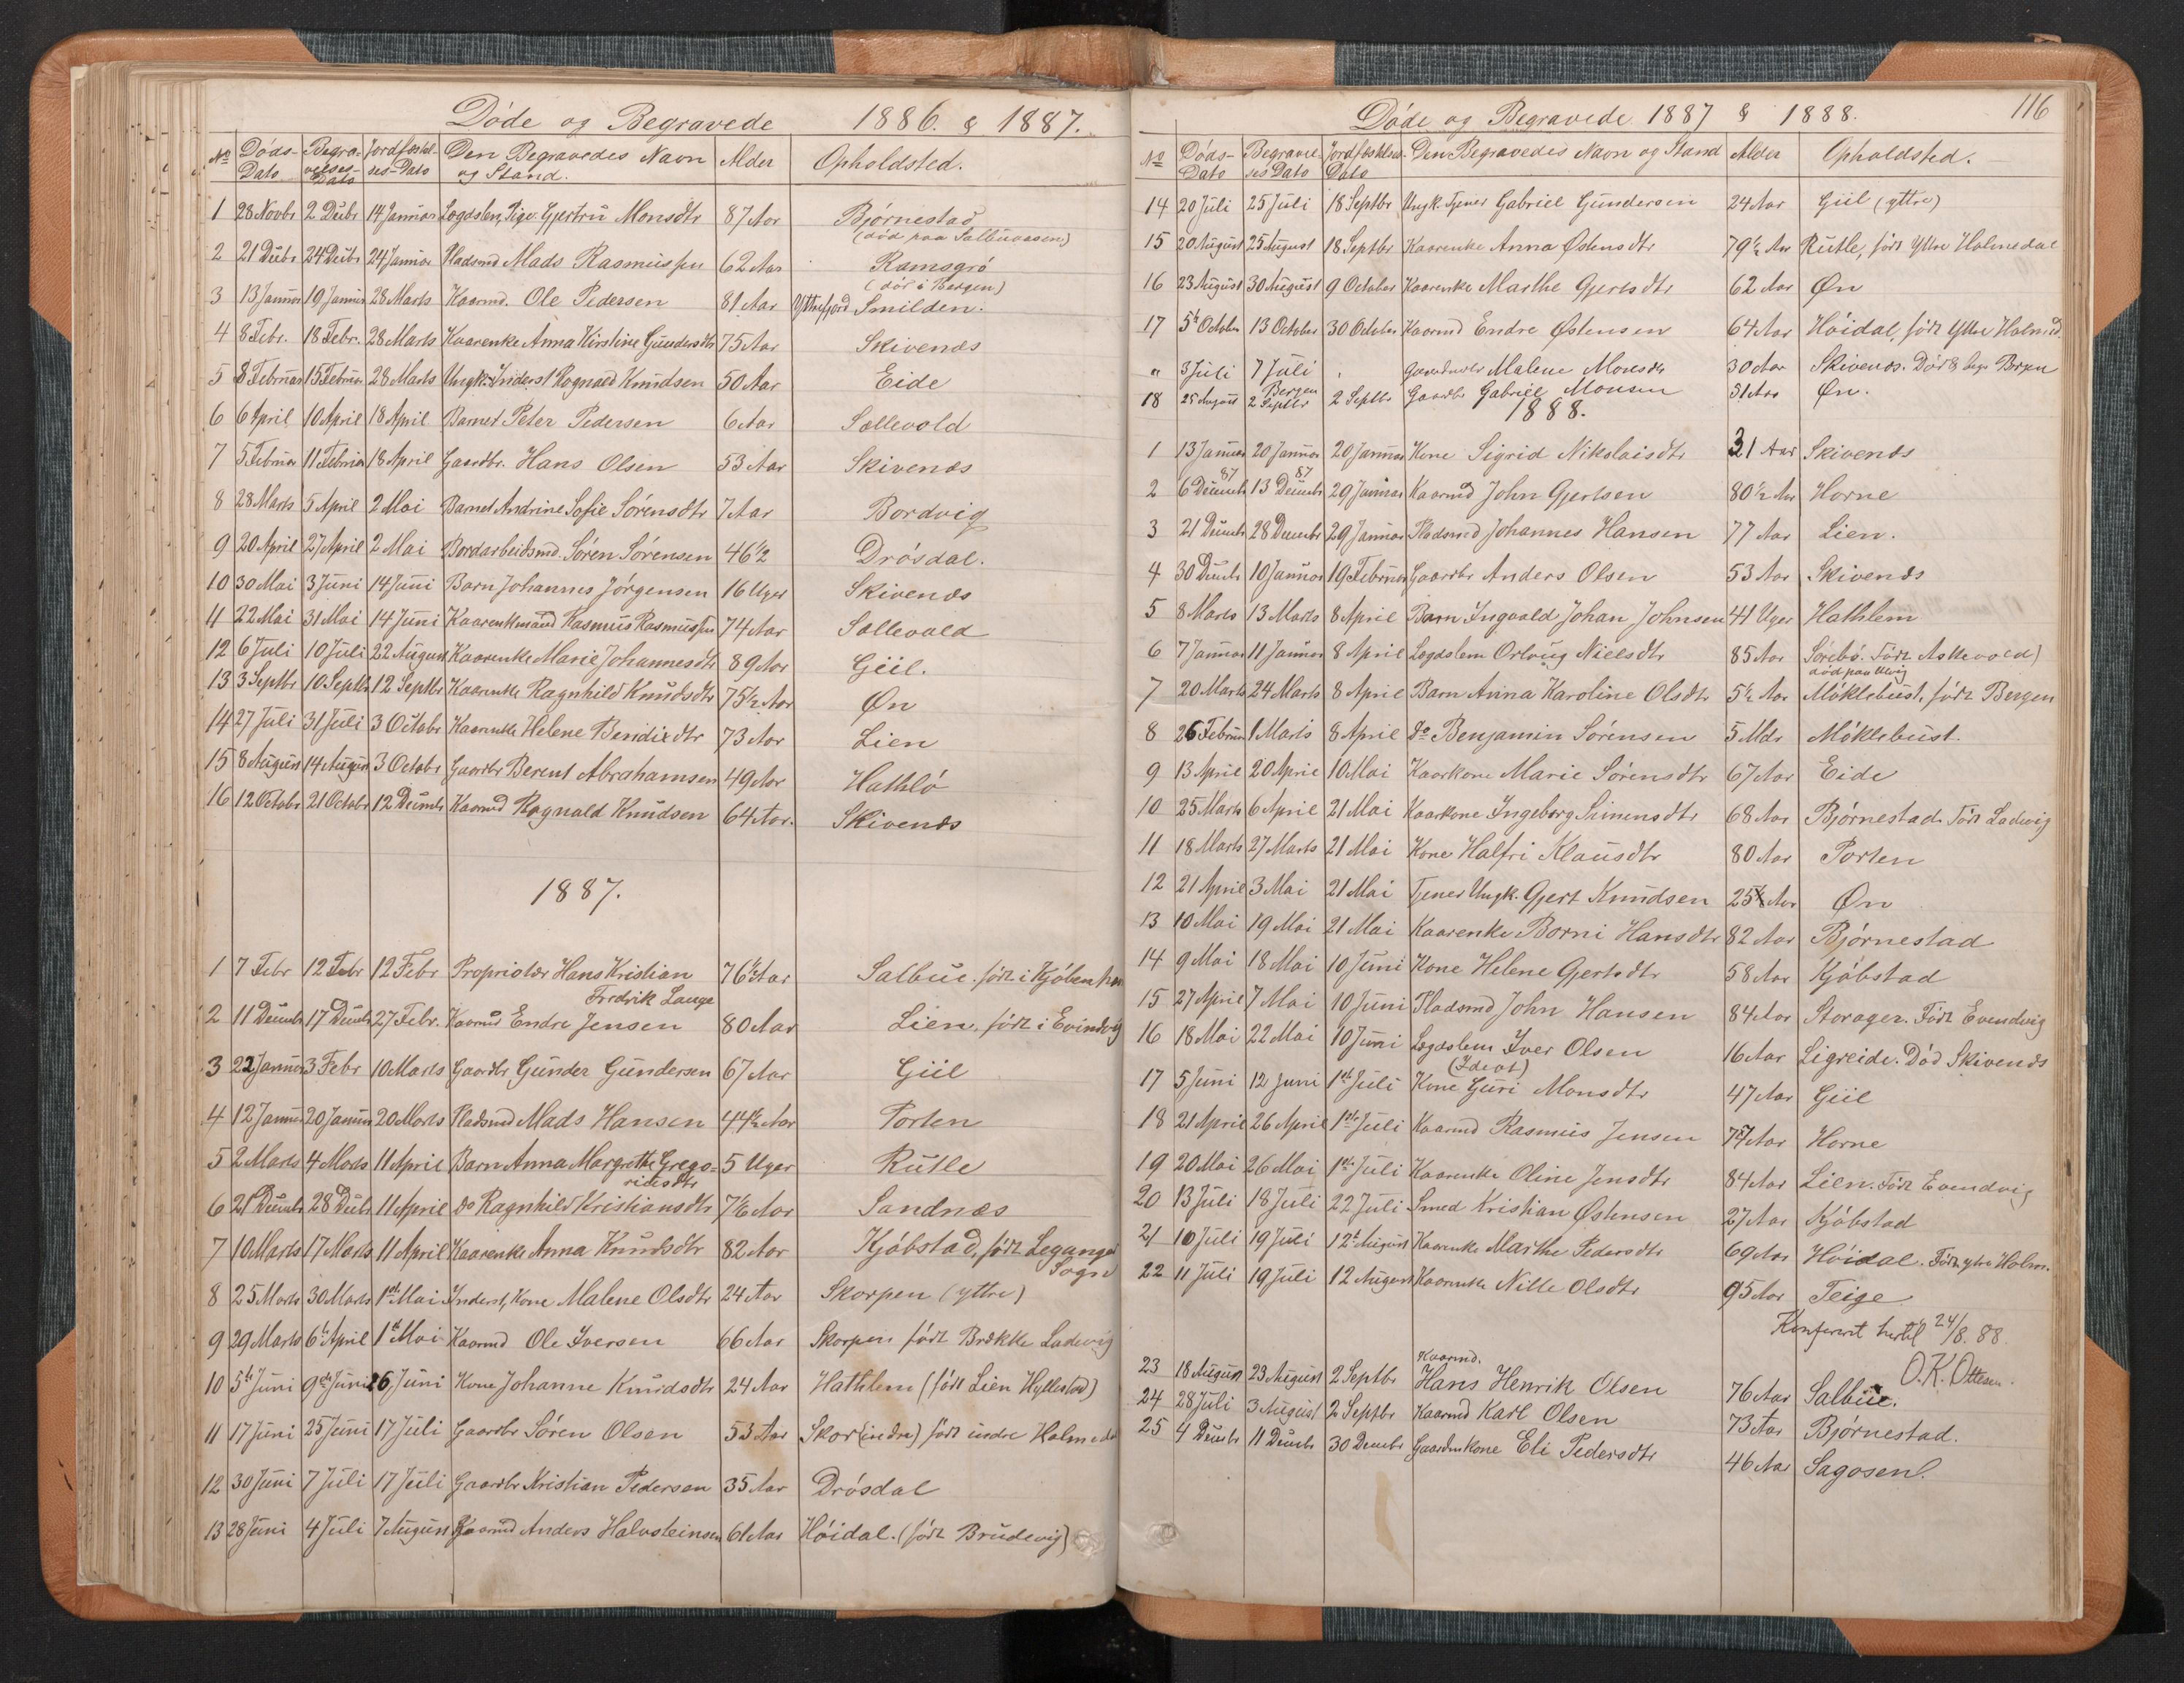 Döde og Begravede 1886. & 1887.
No Döds-Dato Begravelses-Dato Jordfæstelses-Dato Den Begravedes Navn og Stand. Alder Opholdsted.
1 28 Novbr 2 Decbr 14 Januar Lægdslem, Pige Gjertrü Monsdtr 87 Aar Bjørnestad
(död paa Salbuaasen)
2 21 Decbr 24 Decbr 24 Januar Pladsmd Mads Rasmussen 62 Aar Ramsgrö
(död i Bergen)
3 13 Januar 19 Januar 28 Marts Kaarmd. Ole Pedersen 81 Aar Yttrefjord Smilden.
4 8 Febr. 18 Febr. 28 Marts Kaarenke Anna Kirstine Gundersdtr 75 Aar Skivenæs
5 8 Februar 15 Februar 28 Marts Ungk. Inderst Ragnald Knudsen 50 Aar Eide
6 6 April 10 April 18 April Barnet Peter Pedersen 6 Aar Sællevold
7 5 Februar 11 Februar 18 April Gaardbr. Hans Olsen 53 Aar Skivenæs
8 28 Marts 5 April 2 Mai Barnet Andrine Sofie Sörensdtr 7 Aar Bordvig
9 20 April 27 April 2 Mai Bordarbeidsmd. Sören Sörensen 46 1/2 Drösdal.
10 30 Mai 3 Juni 14 Juni Barn Johannes Jörgensen 16 Uger Skivenæs
11 22 Mai 31 Mai 14 Juni Kaarenkmand Rasmus Rasmussen 74 Aar Sællevold
12 6 Juli 10 Juli 22 August Kaarenke Marie Johannesdtr 89 Aar Giil.
13 3 Septbr 10 Septbr 12 Septbr Kaarenke Ragnhild Knudsdtr 75 1/2 Aar Øn
14 27 Juli 31 Juli 3 Octobr Kaarenke Helene Bendixdtr 73 Aar Lien
15 8 August 14 August 3 Octobr Gaardbr Berent Abrahamsen 49 Aar Hathlö
16 12 Octobr 21 Octobr 12 Decmbr Kaarmd Ragnald Knudsen 64 Aar. Skivenæs
1887.
1 7 Febr 12 Febr 12 Febr Proprietær Hans Kristian 76 1/2 Aar Salbue. födt i Kjöbenhavn
Fredrik Lange
2 11 Decmbr 17 Decmbr 27 Febr. Kaarmd Endre Jensen 80 Aar Lien, födt i Evindvig
3 22 Januar 3 Febr 10 Marts Gaardbr Gunder Gundersen 67 Aar Giil
4 12 Januar 20 Januar 20 Marts Pladsmd Mads Hansen 44 1/2 Aar Porten
5 2 Marts 4 Marts 11 April Barn Anna Margrethe Grego- 5 Uger Rutle
riusdtr
6 21 Decmbr 28 Decbr 11 April do Ragnhild Kristiansdtr 7 1/2 Aar Sandnæs
7 10 Marts 17 Marts 11 April Kaarenke Anna Knudsdtr 82 Aar Kjöbstad, födt Leganger
Sogn
8 25 Marts 30 Marts 1ste Mai Inderst, Kone Malene Olsdtr 24 Aar Skorpen (yttre)
9 29 Marts 6te April 1ste Mai Kaarmd Ole Iversen 66 Aar Skorpen födt Brække Ladevig
10 5te Juni 9de Juni 26 Juni Kone Johanne Knudsdtr 24 Aar Hathlem (födt Lien Hyllestad)
11 17 Juni 25 Juni 17 Juli Gaardbr Sören Olsen 53 Aar Skor(indre) födt indre Holmedal
12 30 Juni 7 Juli 17 Juli Gaardbr Kristian Pedersen 35 Aar Drösdal
13 28 Juni 4 Juli 7 August Gaarmd Anders Halvsteinsen 61 Aar Höidal. (födt Brudevig)
116
Döde og Begravede 1887 & 1888.
No Döds-Dato Begravelses Dato Jordfæstelses-Dato Den Begravedes Navn og Stand Alder Opholdsted.
14 20 Juli 25 Juli 18 Septbr Ungk. Tjener Gabriel Gundersen 24 Aar Giil (yttre)
15 20 August 25 August 18 Septbr Kaarenke Anna Østensdtr 79 1/2 Aar Rutle, födt Yttre Holmedal
16 23 August 30 August 9 October Kaarenke Marthe Gjertsdtr 62 Aar Øn
17 5te October 13 October 30 October Kaarmd Endre Østensen 64 Aar Höidal, födt Yttre Holmed.
" 3 Juli 7 Juli " Malene Monsdtr 30 Aar Skivenæs. Död & begr Bergen
Bergen
18 25 August 2 Septbr 2 Septbr Gaardbr Gabriel Monsen 31 Aar Øn.
1888.
1 13 Januar 20 Januar 20 Januar Kone Sigrid Nikolaisdtr 31 Aar Skivenæs
2 6 Decmbr 87 13 Decmbr 87 29 Januar Kaarmd John Gjertsen 80 1/2 Aar Horne
3 21 Decmbr 28 Decembr 29 Januar Pladsmd Johannes Hansen 77 Aar Lien.
4 30 Decmbr 10 Januar 19 Februar Gaardbr Anders Olsen 53 Aar Skivenæs
5 8 Marts 13 Marts 8 April Barn Ingvald Johan Johnsen 41 Uger Hathlem
6 7 Januar 11 Januar 8 April Lægdslem Orloug Nielsdtr 85 Aar Sörebö. Födt Askevold)
död paa Utvig
7 20 Marts 24 Marts 8 April Barn Anna Karoline Olsdtr 5 1/2 Aar Möklebust, födt Bergen
8 26 Februar 1 Marts 8 April Do Benjamin Sörensen 5 Mdr Möklebust.
9 13 April 20 April 10 Mai Kaarkone Marie Sörensdtr 67 Aar Eide
10 25 Marts 6 April 21 Mai Kaarkone Ingeborg Simensdtr 68 Aar Bjørnestad. Födt Ladevig
11 18 Marts 27 Marts 21 Mai Kone Halfri Klausdtr 80 Aar Porten
12 21 April 3 Mai 21 Mai Tjener Ungk. Gjert Knudsen 25 Aar Øn
13 10 Mai 19 Mai 21 Mai Kaarenke Borni Hansdtr 82 Aar Bjørnestad
14 9 Mai 18 Mai 10 Juni Kone Helene Gjertsdtr 58 Aar Kjöbstad
15 27 April 7 Mai 10 Juni Pladsmd John Hansen 84 Aar Storager. Födt Evendvig
16 18 Mai 22 Mai 10 Juni Lægdslem Iver Olsen 16 Aar Ligreide. Död Skivenæs
(Ideot)
17 5 Juni 12 Juni 1ste Juli Kone Guri Monsdtr 47 Aar Giil
18 21 April 26 April 1ste Juli Kaarmd Rasmus Jensen 74 Aar Horne
19 20 Mai 26 Mai 1ste Juli Kaarenke Oline Jensdtr 84 Aar Lien. Födt Evendvig
20 13 Juli 18 Juli 22 Juli Smed Kristian Østensen 27 Aar Kjöbstad
21 10 Juli 19 Juli 12te August Kaarenke Marthe Pedersdtr 69 Aar Höidal. Födt ytre Holm.
22 11 Juli 19 Juli 12 August Kaarenke Nille Olsdtr 95 Aar Teige
Konfereret hertil 24/8. 88.
O. K. Ottesen.
Kaarmd.
23 18 August 23 August 2 Septbr Hans Henrik Olsen 76 Aar Salbue.
24 28 Juli 3 August 2 Septbr Kaarmd Karl Olsen 73 Aar Bjørnestad.
25 4 Decmbr 11 Decmbr 30 Decmbr Gaardmkone Eli Pedersdtr 46 Aar Sagosen.